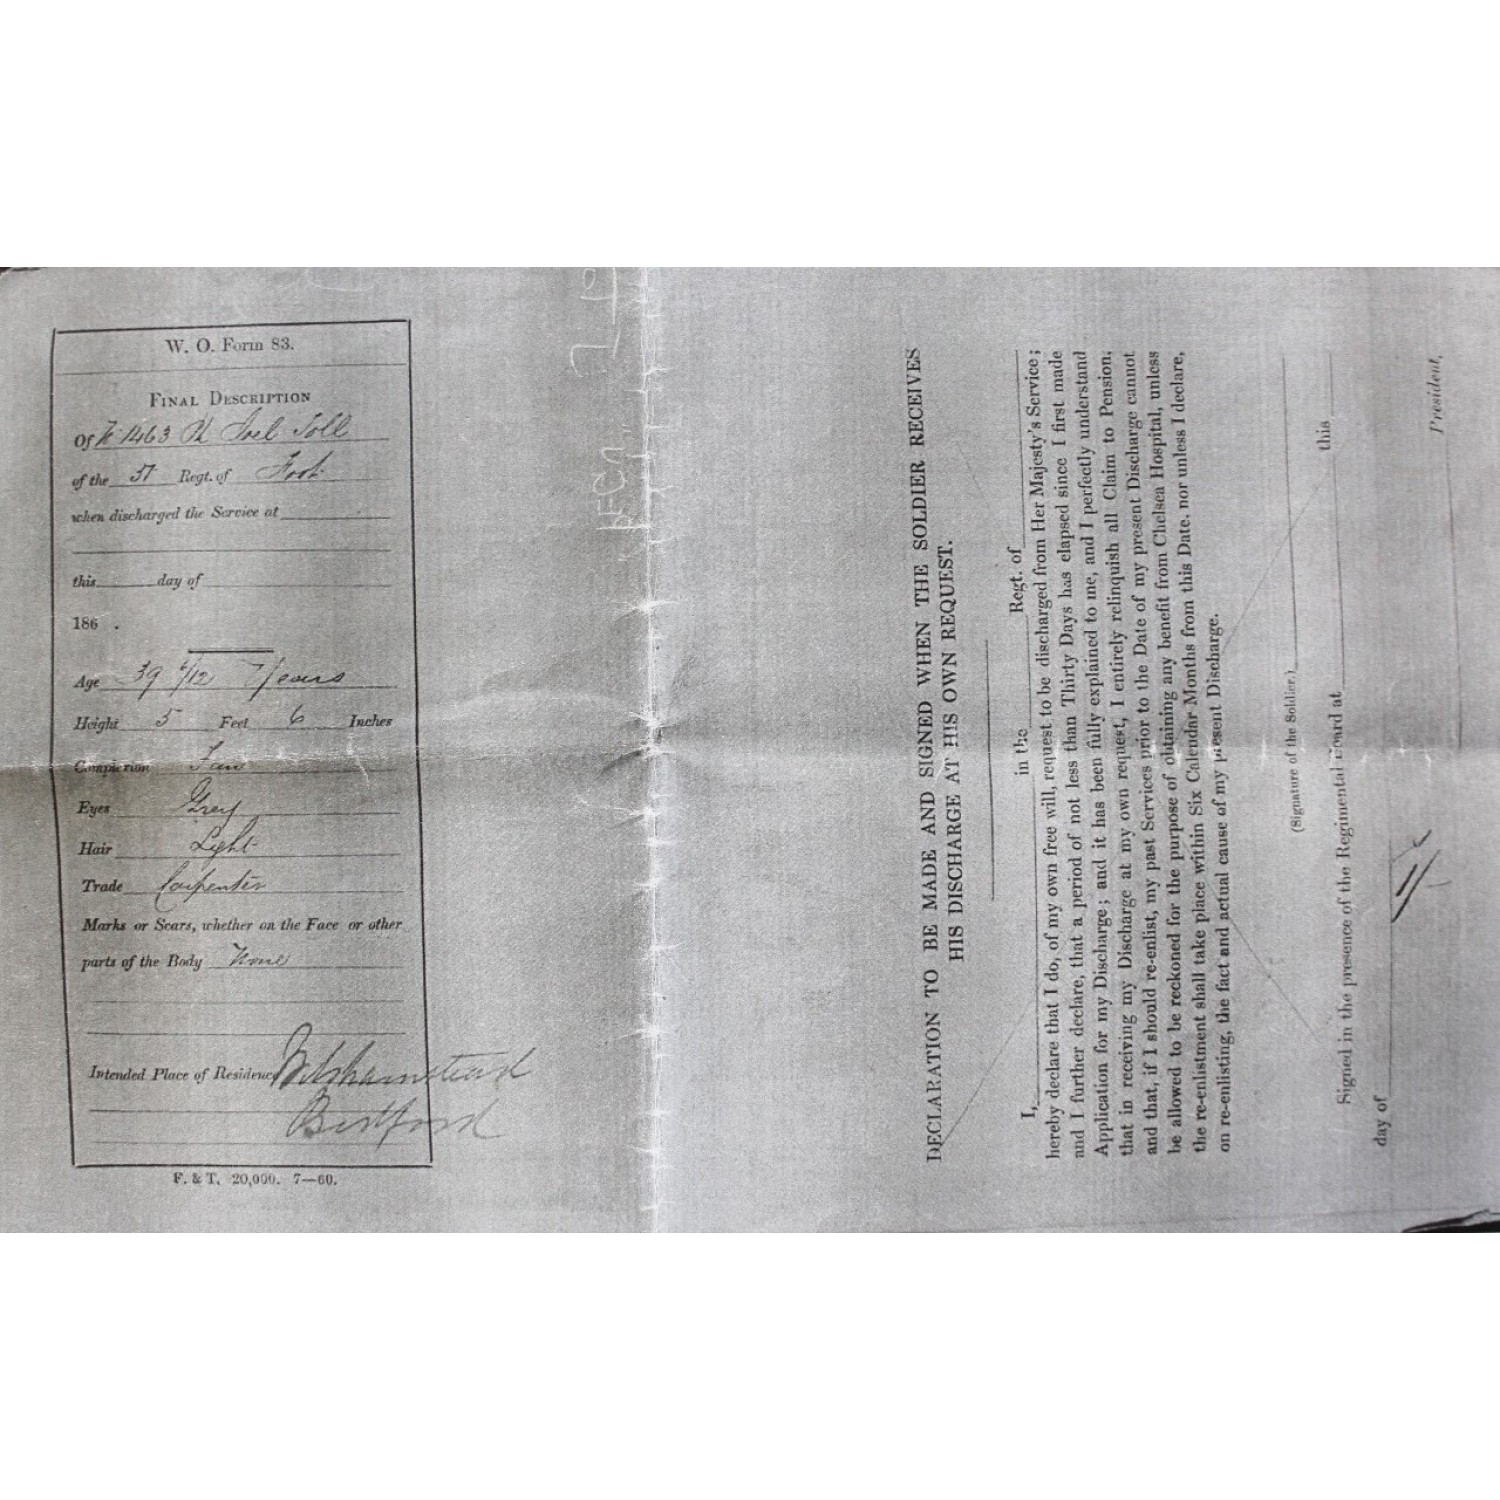 W. O. Form 83.
FINAL DESCRIPTION
Of No 1463 Pt Joel Toll
of the 37 Regt. of Foot
when discharged the Service at
this day of
186 .
Age 39 6/12 Years
Height 5 Feet 6 Inches
Complexion Fair
Eyes Grey
Hair Light
Trade Carpenter
Marks or Scars, whether on the Face or other
parts of the Body None
Intended Place of Residence Wilshamstead
Bedford
F. & T. 20,000. 7—60.
DECLARATION TO BE MADE AND SIGNED WHEN THE SOLDIER RECEIVES
HIS DISCHARGE AT HIS OWN REQUEST.
I, in the Regt. of
hereby declare that I do, of my own free will, request to be discharged from Her Majesty's Service;
and I further declare, that a period of not less than Thirty Days has elapsed since I first made
Application for my Discharge; and it has been fully explained to me, and I perfectly understand
that in receiving my Discharge at my own request, I entirely relinquish all Claim to Pension,
and that, if I should re-enlist, my past Services prior to the Date of my present Discharge cannot
be allowed to be reckoned for the purpose of obtaining any benefit from Chelsea Hospital, unless
the re-enlistment shall take place within Six Calendar Months from this Date. nor unless I declare,
on re-enlisting, the fact and actual cause of my present Discharge.
(Signature of the Soldier.)
Signed in the presence of the Regimental Board at this
day of
President.